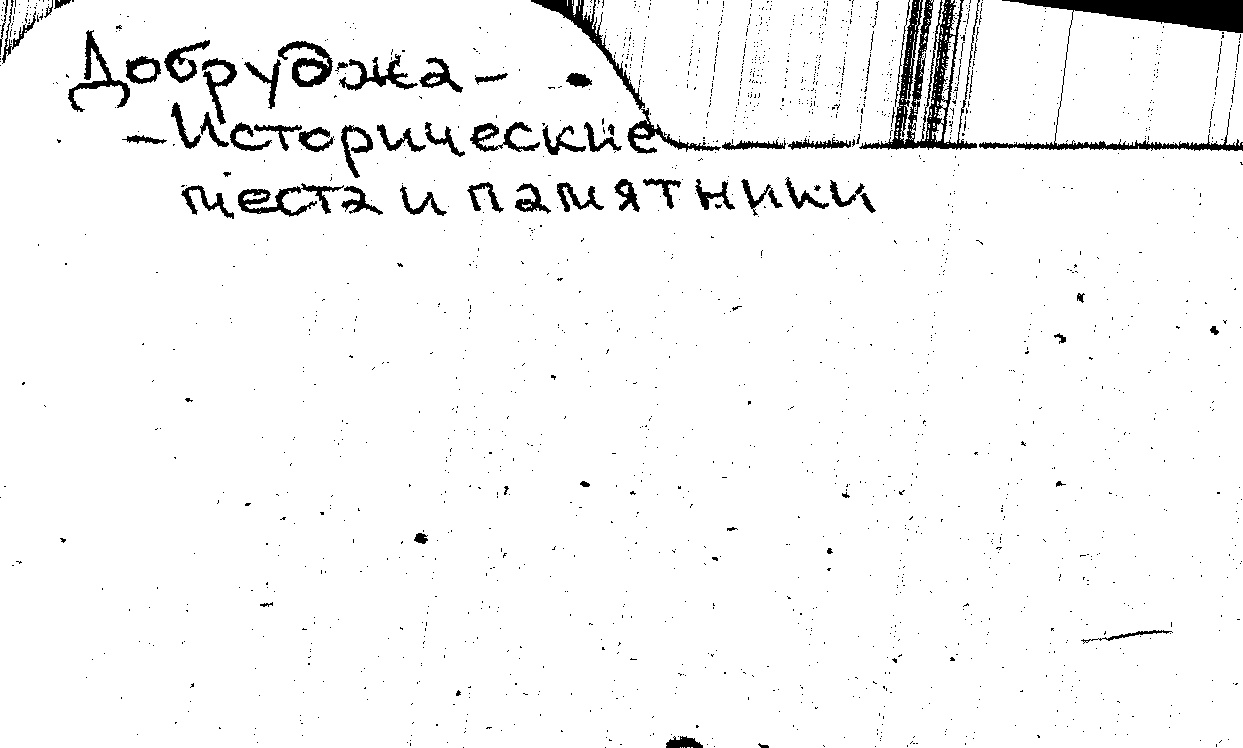 Добруджа -
- Исторические
места и памятники